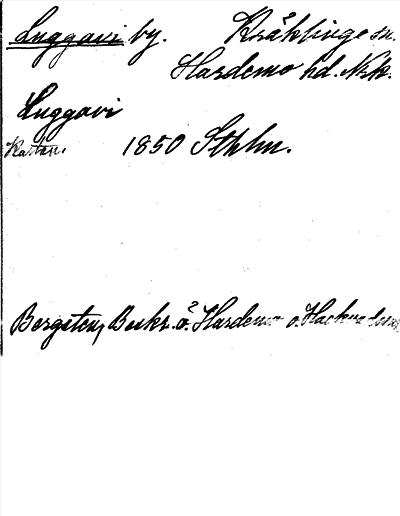 Luggavi by. Kräklinge sn.
Hardemo hd. Nrk.
Luggavi
Kartan. 1850 Sthlm.
Bergsten, Beskr. ö. Hardemo o. Hackvad